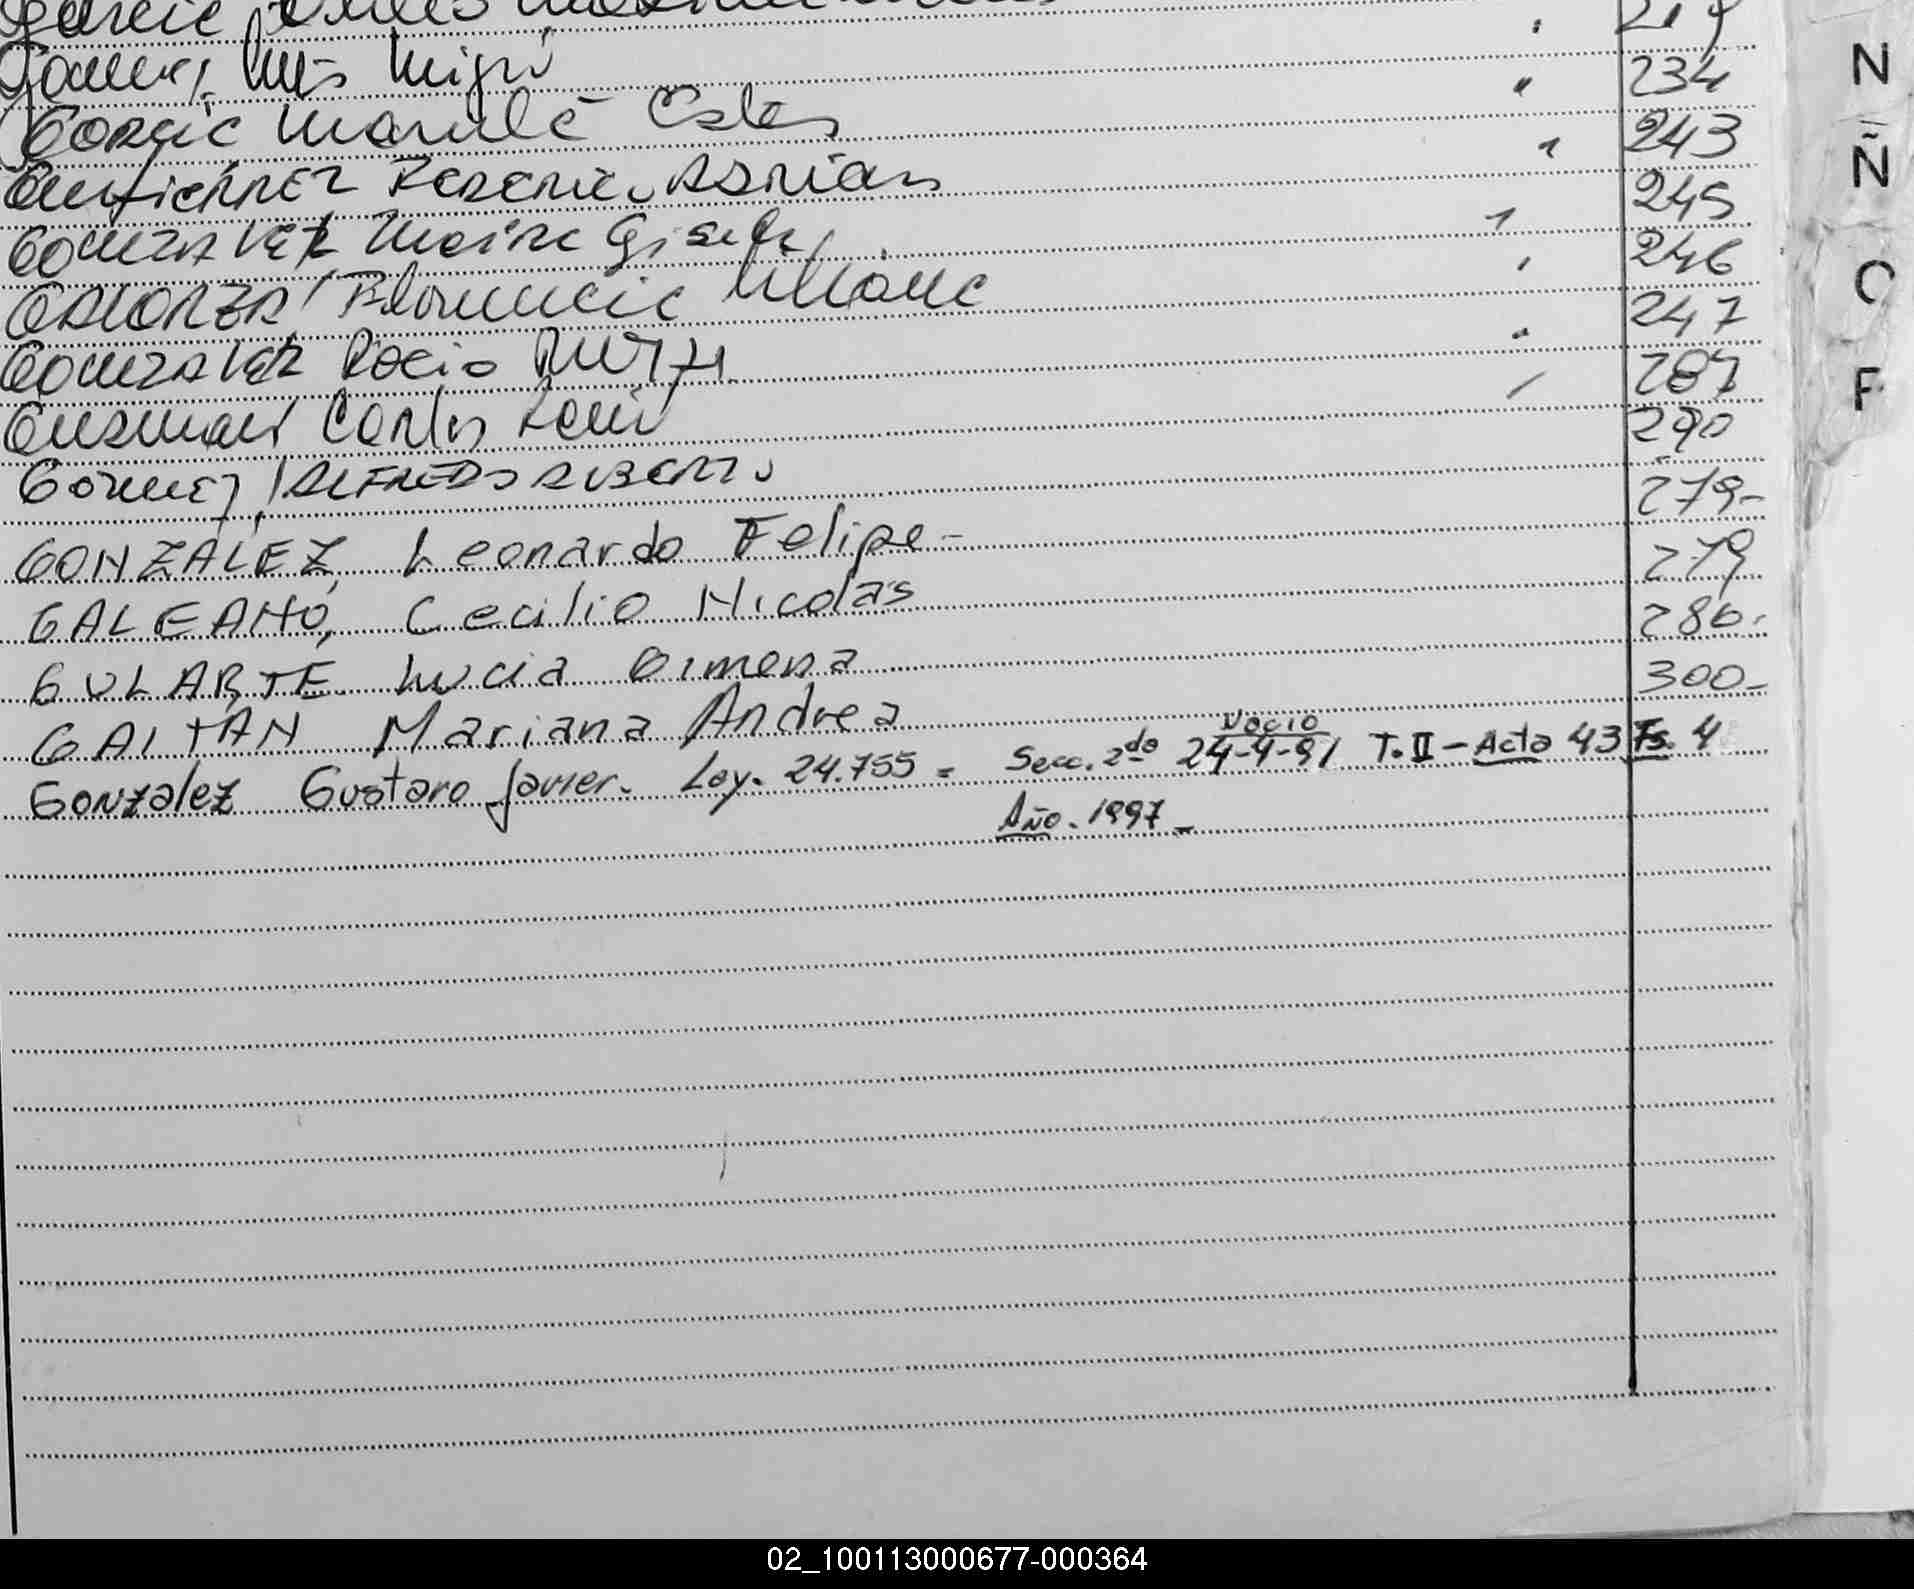 219
Gomez, Luis Miguel " 234
Garcia Mariela Ester " 243
Gutierrez Federico Adrian 245
Gonzalez Maira Gisela 246
Galorza Florencia Liliana 247
Gonzalez Rocio Ruth 287
Guzman Carlos 290
Gomez, Alfredo Alberto 279-
GONZALEZ, Leonardo Felipe- 279
GALEANO, Cecilio Nicolás 286.
GULARTE Lucia Gimena 300-
GAITAN Mariana Andrea
Nacio
Gonzalez Gustavo Javier. Ley. 24.755 = Secc. 2da 24-4-91 T. II - Acta 43 Fs. 4
Año. 1997-
N
Ñ
O
P
02_100113000677-000364